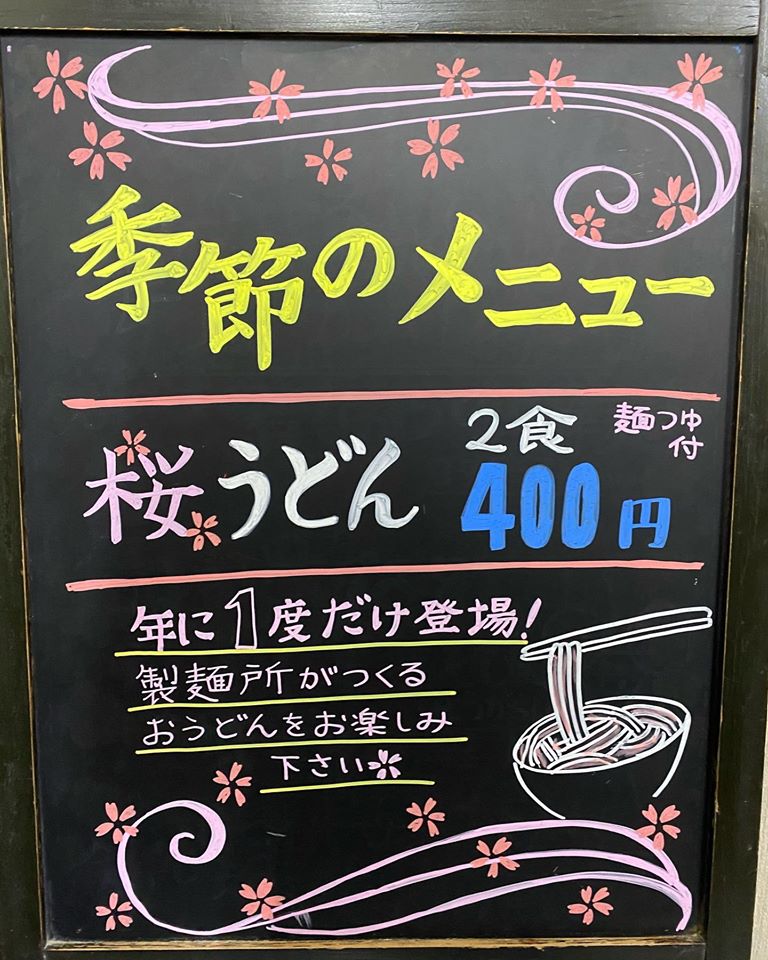 季節のメニュー
桜うどん 2食 麺つゆ付
400円
年に1度だけ登場!
製麺所がつくる
おうどんをお楽しみ
下さい